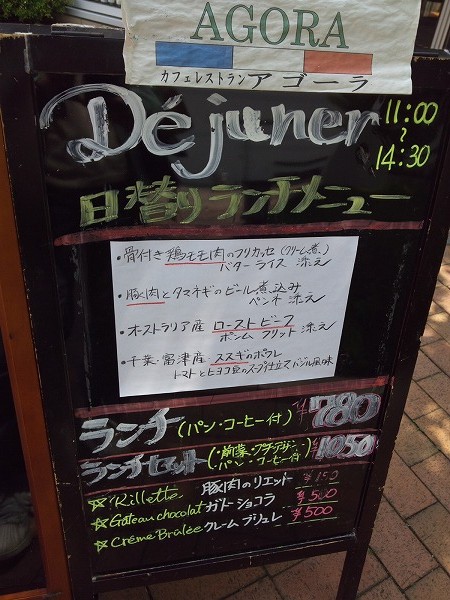 AGORA
カフェレストラン アゴーラ
Déjuner
11:00
~
14:30
日替りランチメニュー
・骨付き鶏モモ肉のフリカッセ(クリーム煮)
バターライス 添え
・豚肉とタマネギのビール煮込み
ペンネ 添え
・オーストラリア産 ローストビーフ
ポンム フリット 添え
・千葉・富津産 スズキのポワレ
トマトとヒヨコ豆のスープ仕立 バジル風味
ランチ(パン・コーヒー付) ¥780
ランチセット(・前菜・プチデザート・パン・コーヒー付) ¥1050
☆Rillette 豚肉のリエット ¥150
☆Gâteau chocolat ガトーショコラ ¥500
☆Crème Brûlée クレームブリュレ ¥500